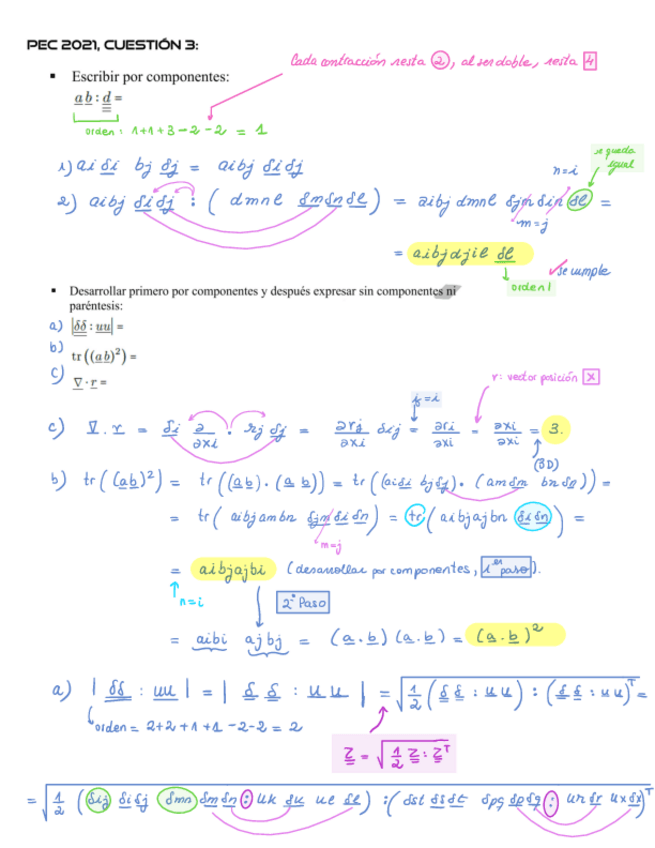 PEC 2021, CUESTIÓN 3:
Cada contracción resta 2, al ser doble, resta 4
▪ Escribir por componentes:
a b : d =
orden: 1+1+3-2-2 = 1
1) ai δi bj δj = aibj δiδj
se queda igual
n=i
2) aibj δiδj : ( dmnl δmδnδl ) = aibj dmnl δjm δin δl =
m=j
= aibjdjil δl
se cumple
orden 1
▪ Desarrollar primero por componentes y después expresar sin componentes ni
paréntesis:
a) |δδ : uu| =
b) tr((ab)²) =
c) ∇ · r =
r: vector posición x
j=i
c) ∇ · r = δi ∂/∂xi · rj δj = ∂rj/∂xi δij = ∂ri/∂xi = ∂xi/∂xi = 3.
(3D)
b) tr((ab)²) = tr((ab)·(a b)) = tr((aiδi bjδj)·(amδm bnδn)) =
= tr( aibjambn δjm δiδn ) = tr( aibjajbn δiδn ) =
m=j
= aibjajbi (desarrollar por componentes, 1er paso).
n=i
2º Paso
= aibi ajbj = (a·b)(a·b) = (a·b)²
a) | δδ : uu | = | δ δ : u u | = √ 1/2 ( δ δ : u u ) : ( δ δ : u u )ᵀ =
orden = 2+2+1+1-2-2 = 2
Z = √ 1/2 Z : Zᵀ
= √ 1/2 ( δij δiδj δmn δmδn : uk δk ul δl ) : ( δst δsδt δpq δpδq : ur δr ux δx )ᵀ